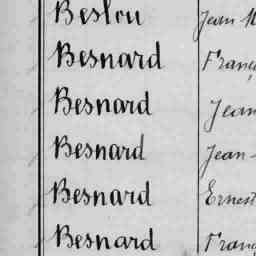 Beslou Jean M
Besnard Franç
Besnard Jean
Besnard Jean-
Besnard Ernest
Besnard Franç